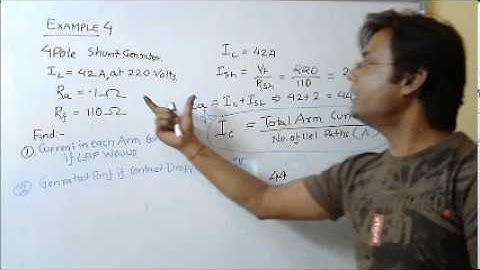 EXAMPLE 4
4 Pole Shunt Generator
IL = 42A, at 220 Volts
Ra = .1Ω
Rf = 110Ω
Find:-
① Current in each Arm
if LAP WOUND
② Generated Emf if Contact Drop
IL = 42A
ISh = Vt/RSh = 220/110 = 2
a = IL + ISh ⇒ 42+2 = 44
Ic = Total Arm Curr
No. of llel Paths (A
44